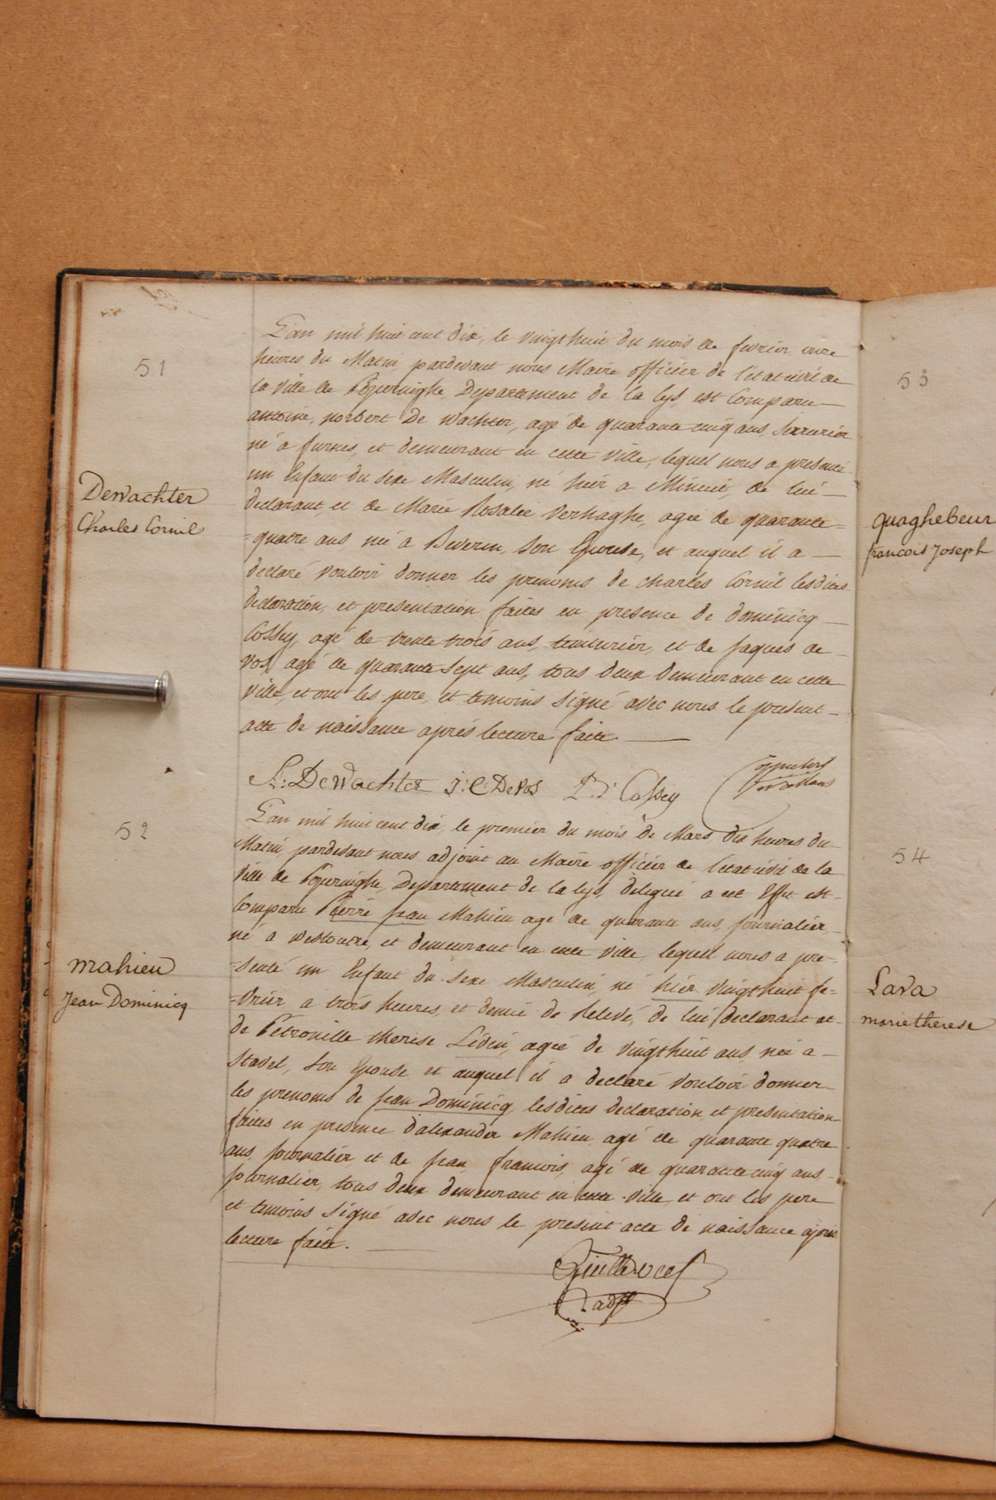 51
Dewachter
Charles Cornil
L'an mil huit cent dix, le vingthuit du mois de fevrier onze
heures du Matin pardevant nous Maire officier de l'etat civil de
la ville de Poperinghe, Departement de la Lys est Comparu
antoine, norbert De wachter, agé de quarante cinq ans, Serrurier
né a furnes, et demeurant en cette ville, lequel nous a presenté
un Enfant du sexe Masculin, né hier a Minuit, de lui
declarant, et de Marie Rosalie Verhaghe, agée de quarante
-quatre ans née a Beveren, Son Epouse, et auquel il a
declaré vouloir donner les prenoms de charles Cornil lesdites
declaration, et presentation faites en presence de dominicq
Cossey, agé de trente trois ans, teinturier, et de Jaques de
vos, agé de quarante Sept ans, tous deux demeurant en cette
ville, et ont les pere, et temoins signé avec nous le present
acte de naissance après lecture faite.
A: DeWachter J: C DeVos P: D: Cossey
52
mahieu
Jean Dominicq
L'an mil huit cent dix, le premier du mois de Mars dix heures du
Matin pardevant nous adjoint au Maire officier de l'etat civil de la
ville de Poperinghe, Departement de la Lys, delegué a cet Effet est
Comparu Pierre Jean Mahieu agé de quarante ans, Journalier
né a westoutre, et demeurant en cette ville, lequel nous a pre-
-senté un Enfant du sexe Masculin, né hier vingthuit fe-
-vrier a trois heures, et demie de Relevé, de lui declarant et
de Petronille therese agée de vingthuit ans née a
Stavel, Son Epouse et auquel il a declaré vouloir donner
les prenoms de Jean Dominicq, lesdites declaration, et presentation
faites en presence d'alexander Mahieu agé de quarante quatre
ans Journalier et de Jean francois, agé de quarante cinq ans
Journalier, tous deux demeurant en cette ville, et ont les pere
et temoins signé avec nous le present acte de naissance après
lecture faite.
adjt
53
quaghebeur
francois Joseph
54
Lava
marie therese